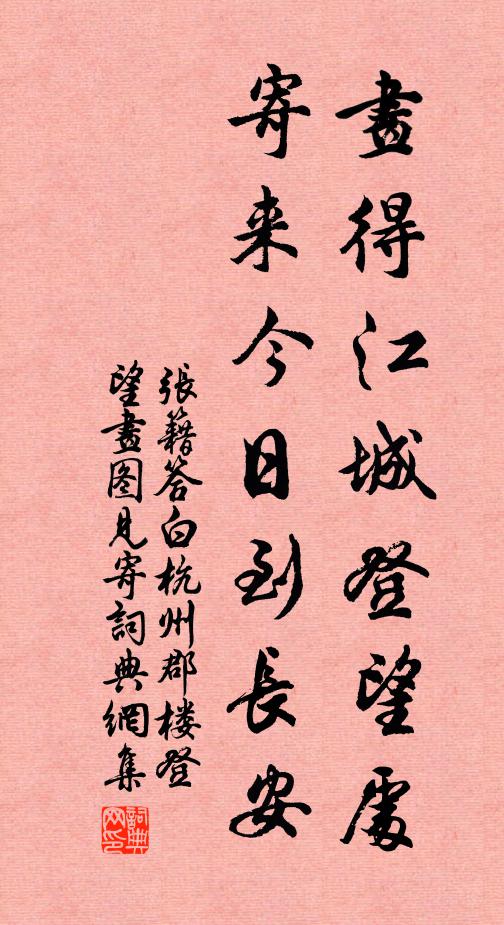 畫得江城登望處
寄来今日到長安
張籍答白杭州郡楼登
望畫图見寄詞典網集
詞典网印